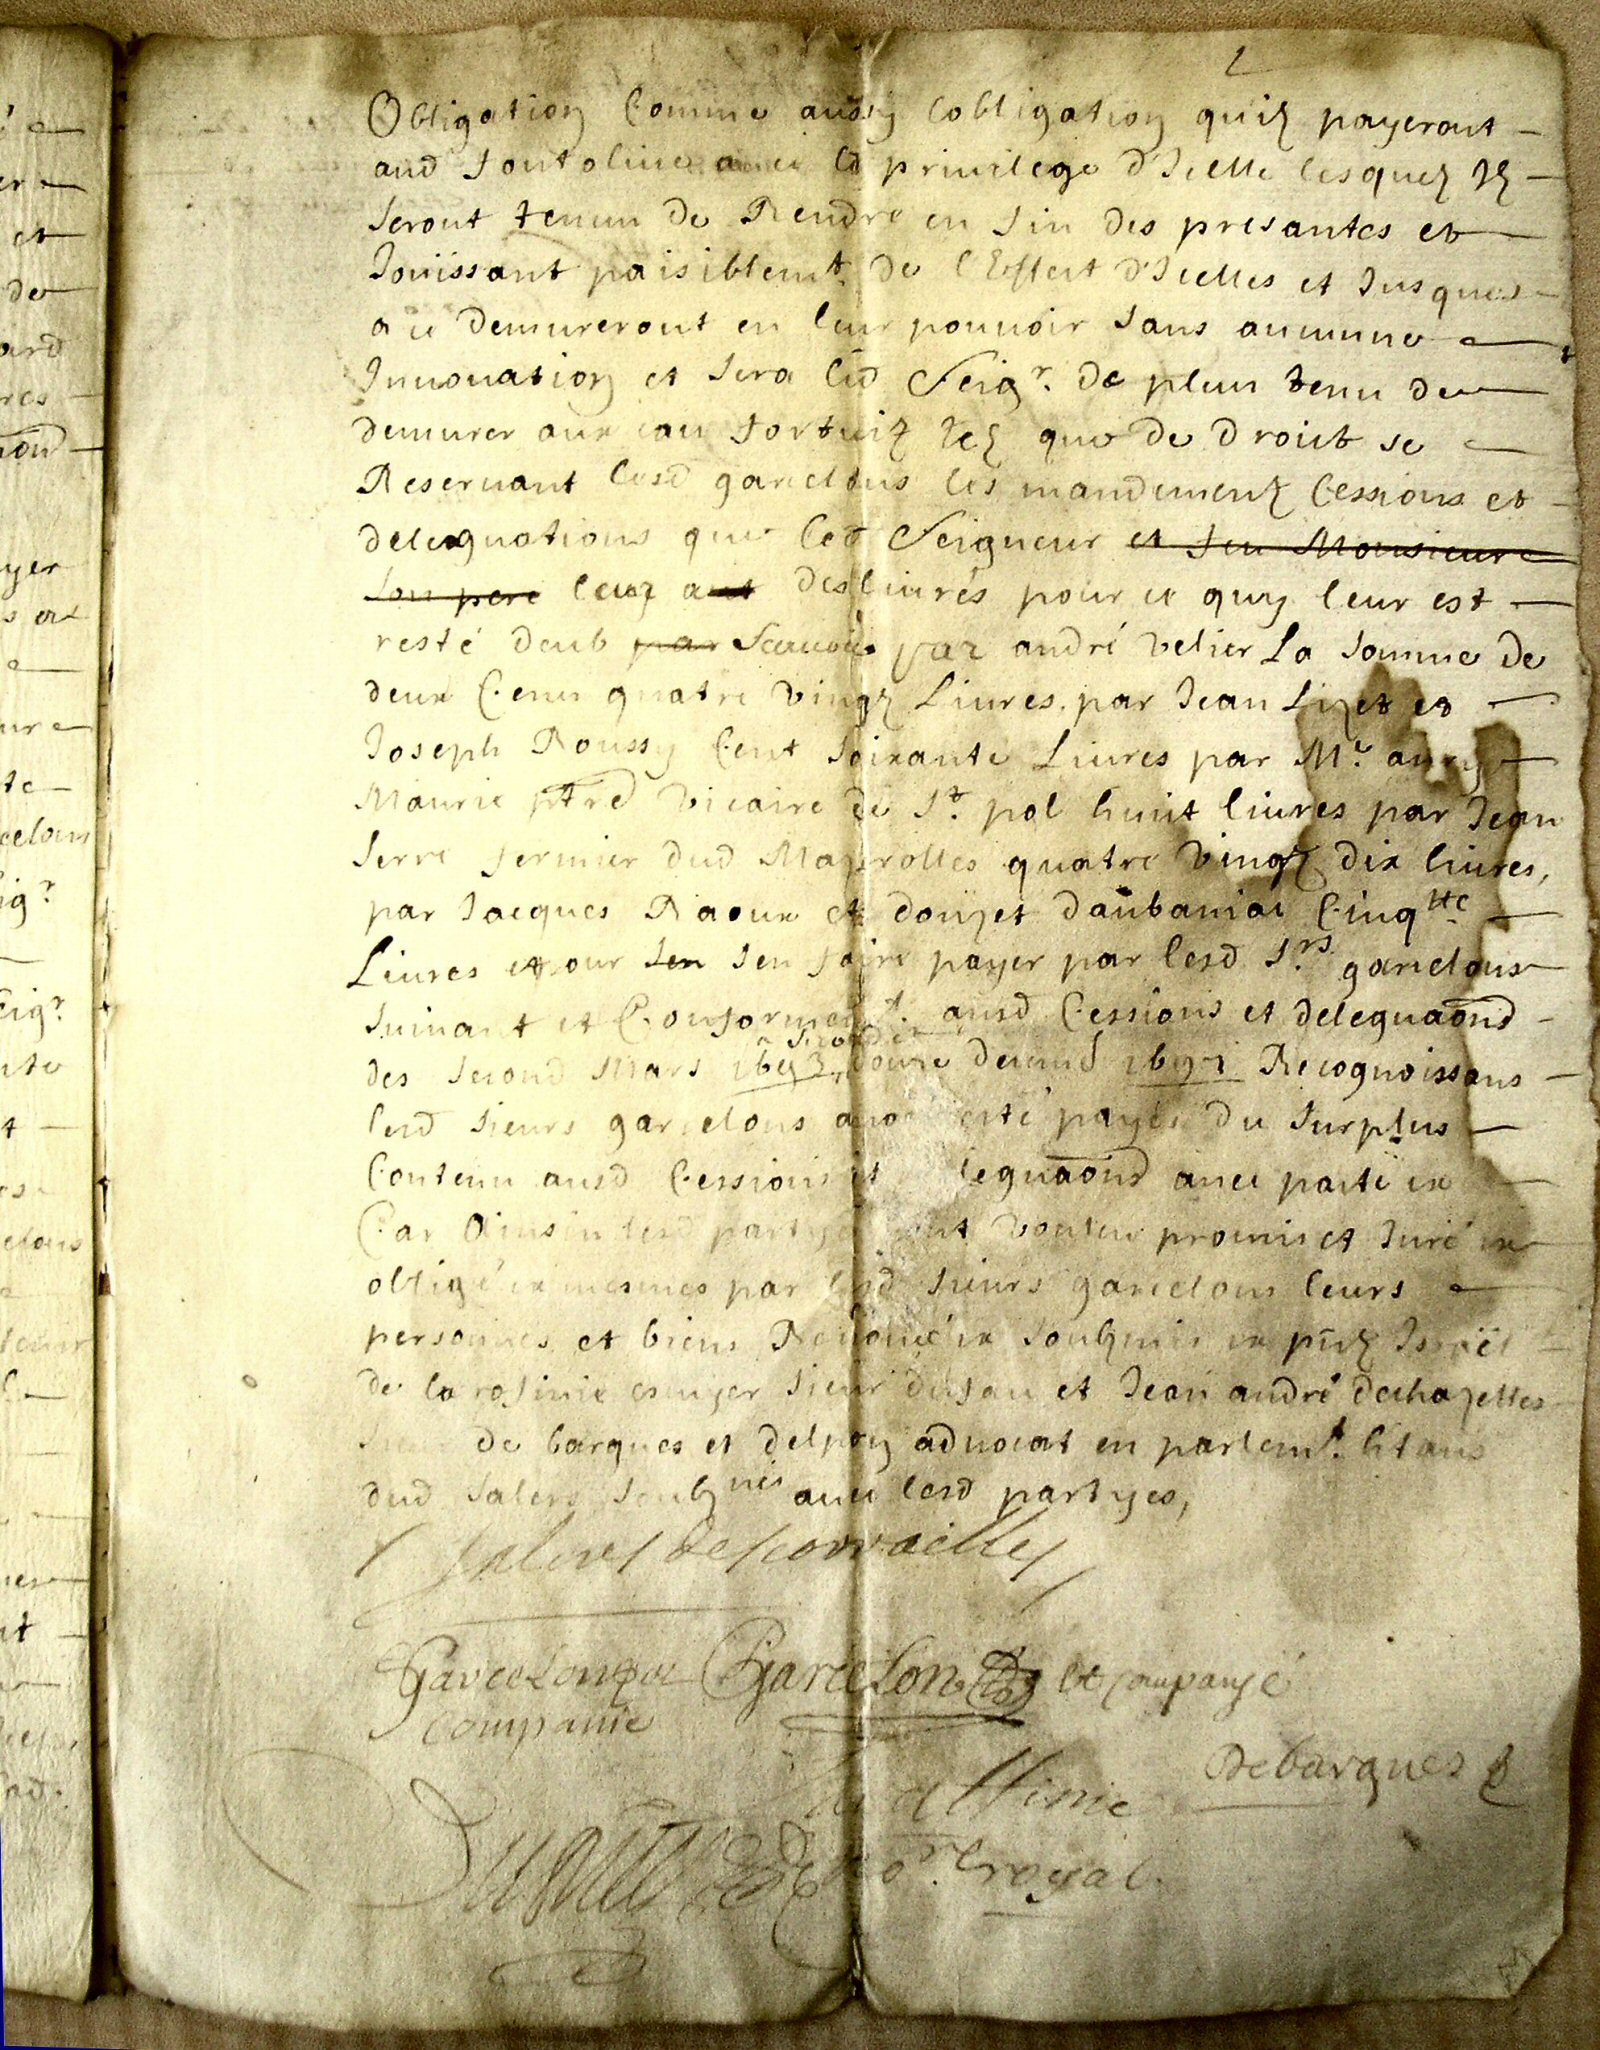 Obligation Comme aussy lobligation quilz payeront
aud fontolive avec le privilege d'Icelle lesquelz Ilz
seront tenun de Rendre en fin des presantes et
Jouissant paisiblemt. de l'Effect d'Icelles et Jusques
a ce demureront en leur pouvoir sans aucunne
Innovation et sera led Seigr. de plus tenu de
demurer aux cas fortuitz telz que de Droict se
Reservant lesd garcelons les mandementz Cessions et
deleguations que led Seigneur et feu Monsieur
son pere leuz ant deslivrés pour ce quy leur est
resté deub par Scavoir par andré velier La somme de
deux Cens quatre vingtz Livres. par Jean Lizet et
Joseph Roussy Cent soixante Livres par Mr. aury
Mauric ptre vicaire de St. pol huit livres par Jean
serre fermier dud Mazerolles quatre vingtz dix livres,
par Jacques Raoux et douzet daubaniac Cinqtte
Livres et pour sen sen faire payer par lesd Srs. garcelons
suivant et Conformemt. ausd Cessions et deleguaons
des second Mars 1693 douze decemb 1691 Recognoissans
lesd sieurs garcelons avoir esté payés du surplus
Contenu ausd Cessions et leguaons avec partie ex
Car Ainsin lesd partyes ont vouleu promis et Juré ex
obligé ex mesmes par lesd sieurs garcelons leurs
personnes et biens Renoncé ex soubzmis ex pntz Israël
de la rofinie escuyer sieur dusau et Jean andré dechazettes
de barques et delpon advocat en parlemt. htans
dud salers soubznés avec lesd partyes,
salers descorrailles
Garcelon
Companie
Garcelon et companyé
Debarques
royal.